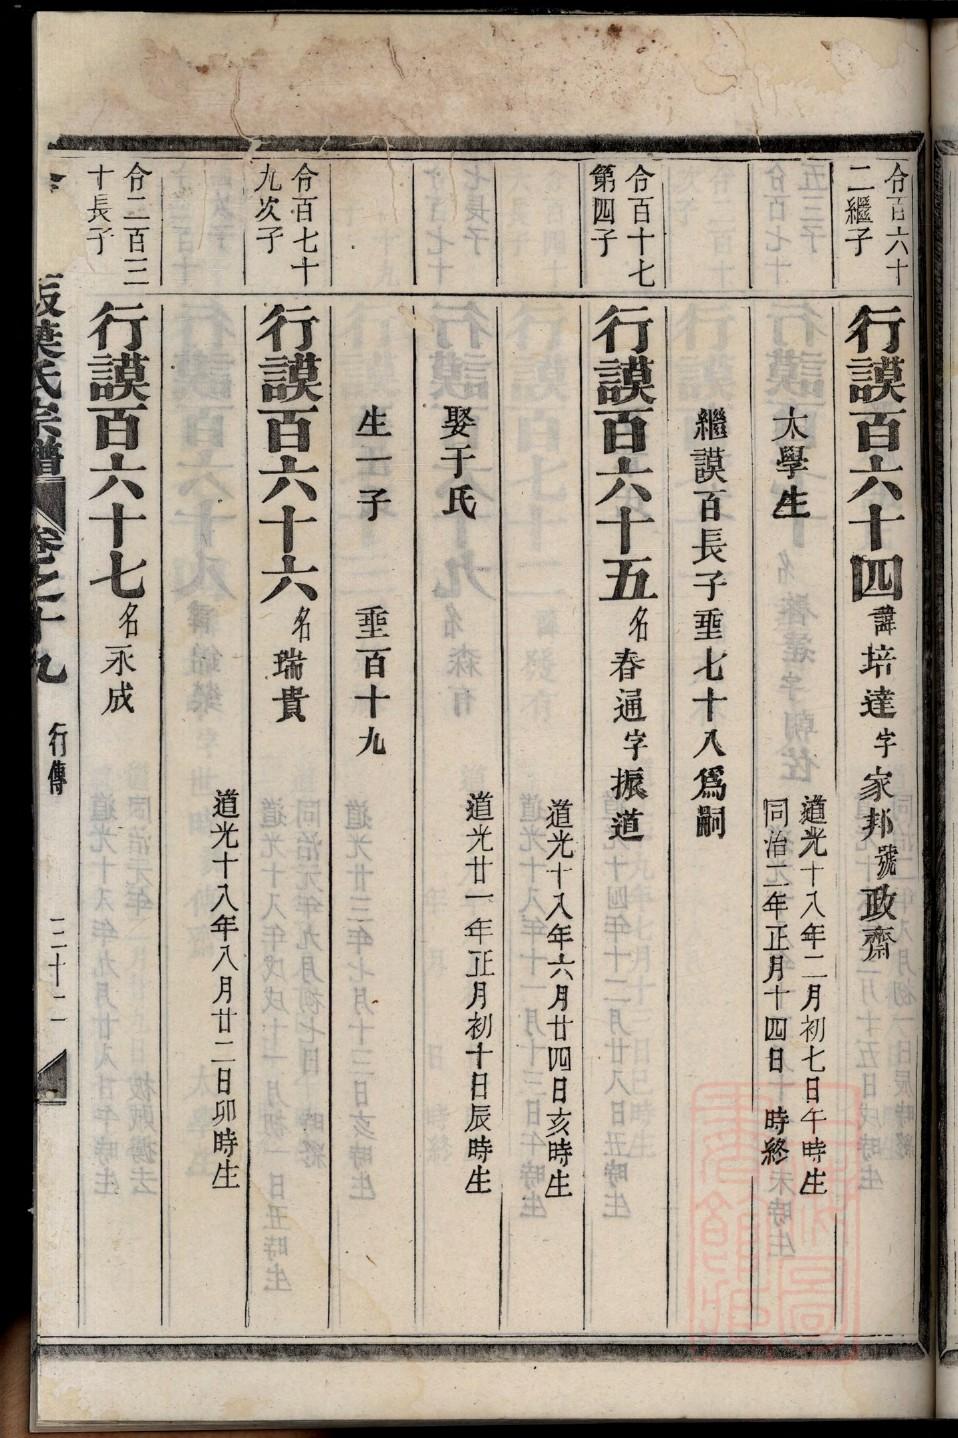 仒百六十
二繼子
行謨百六十四諱培達字家邦號政齋
太學生
道光十八年二月初七日午時生
同治二年正月十四日 時終
繼謨百長子垂七十八爲嗣
仒百十七
第四子
行謨百六十五名春通字振道
道光十八年六月廿四日亥時生
娶于氏
道光廿一年正月初十日辰時生
生一子 垂百十九
仒百七十
九次子
行謨百六十六名瑞貴
道光十八年八月廿二日卯時生
仒二百三
十長子
行謨百六十七名永成
葉氏宗譜 卷之十九 行傳 三十二